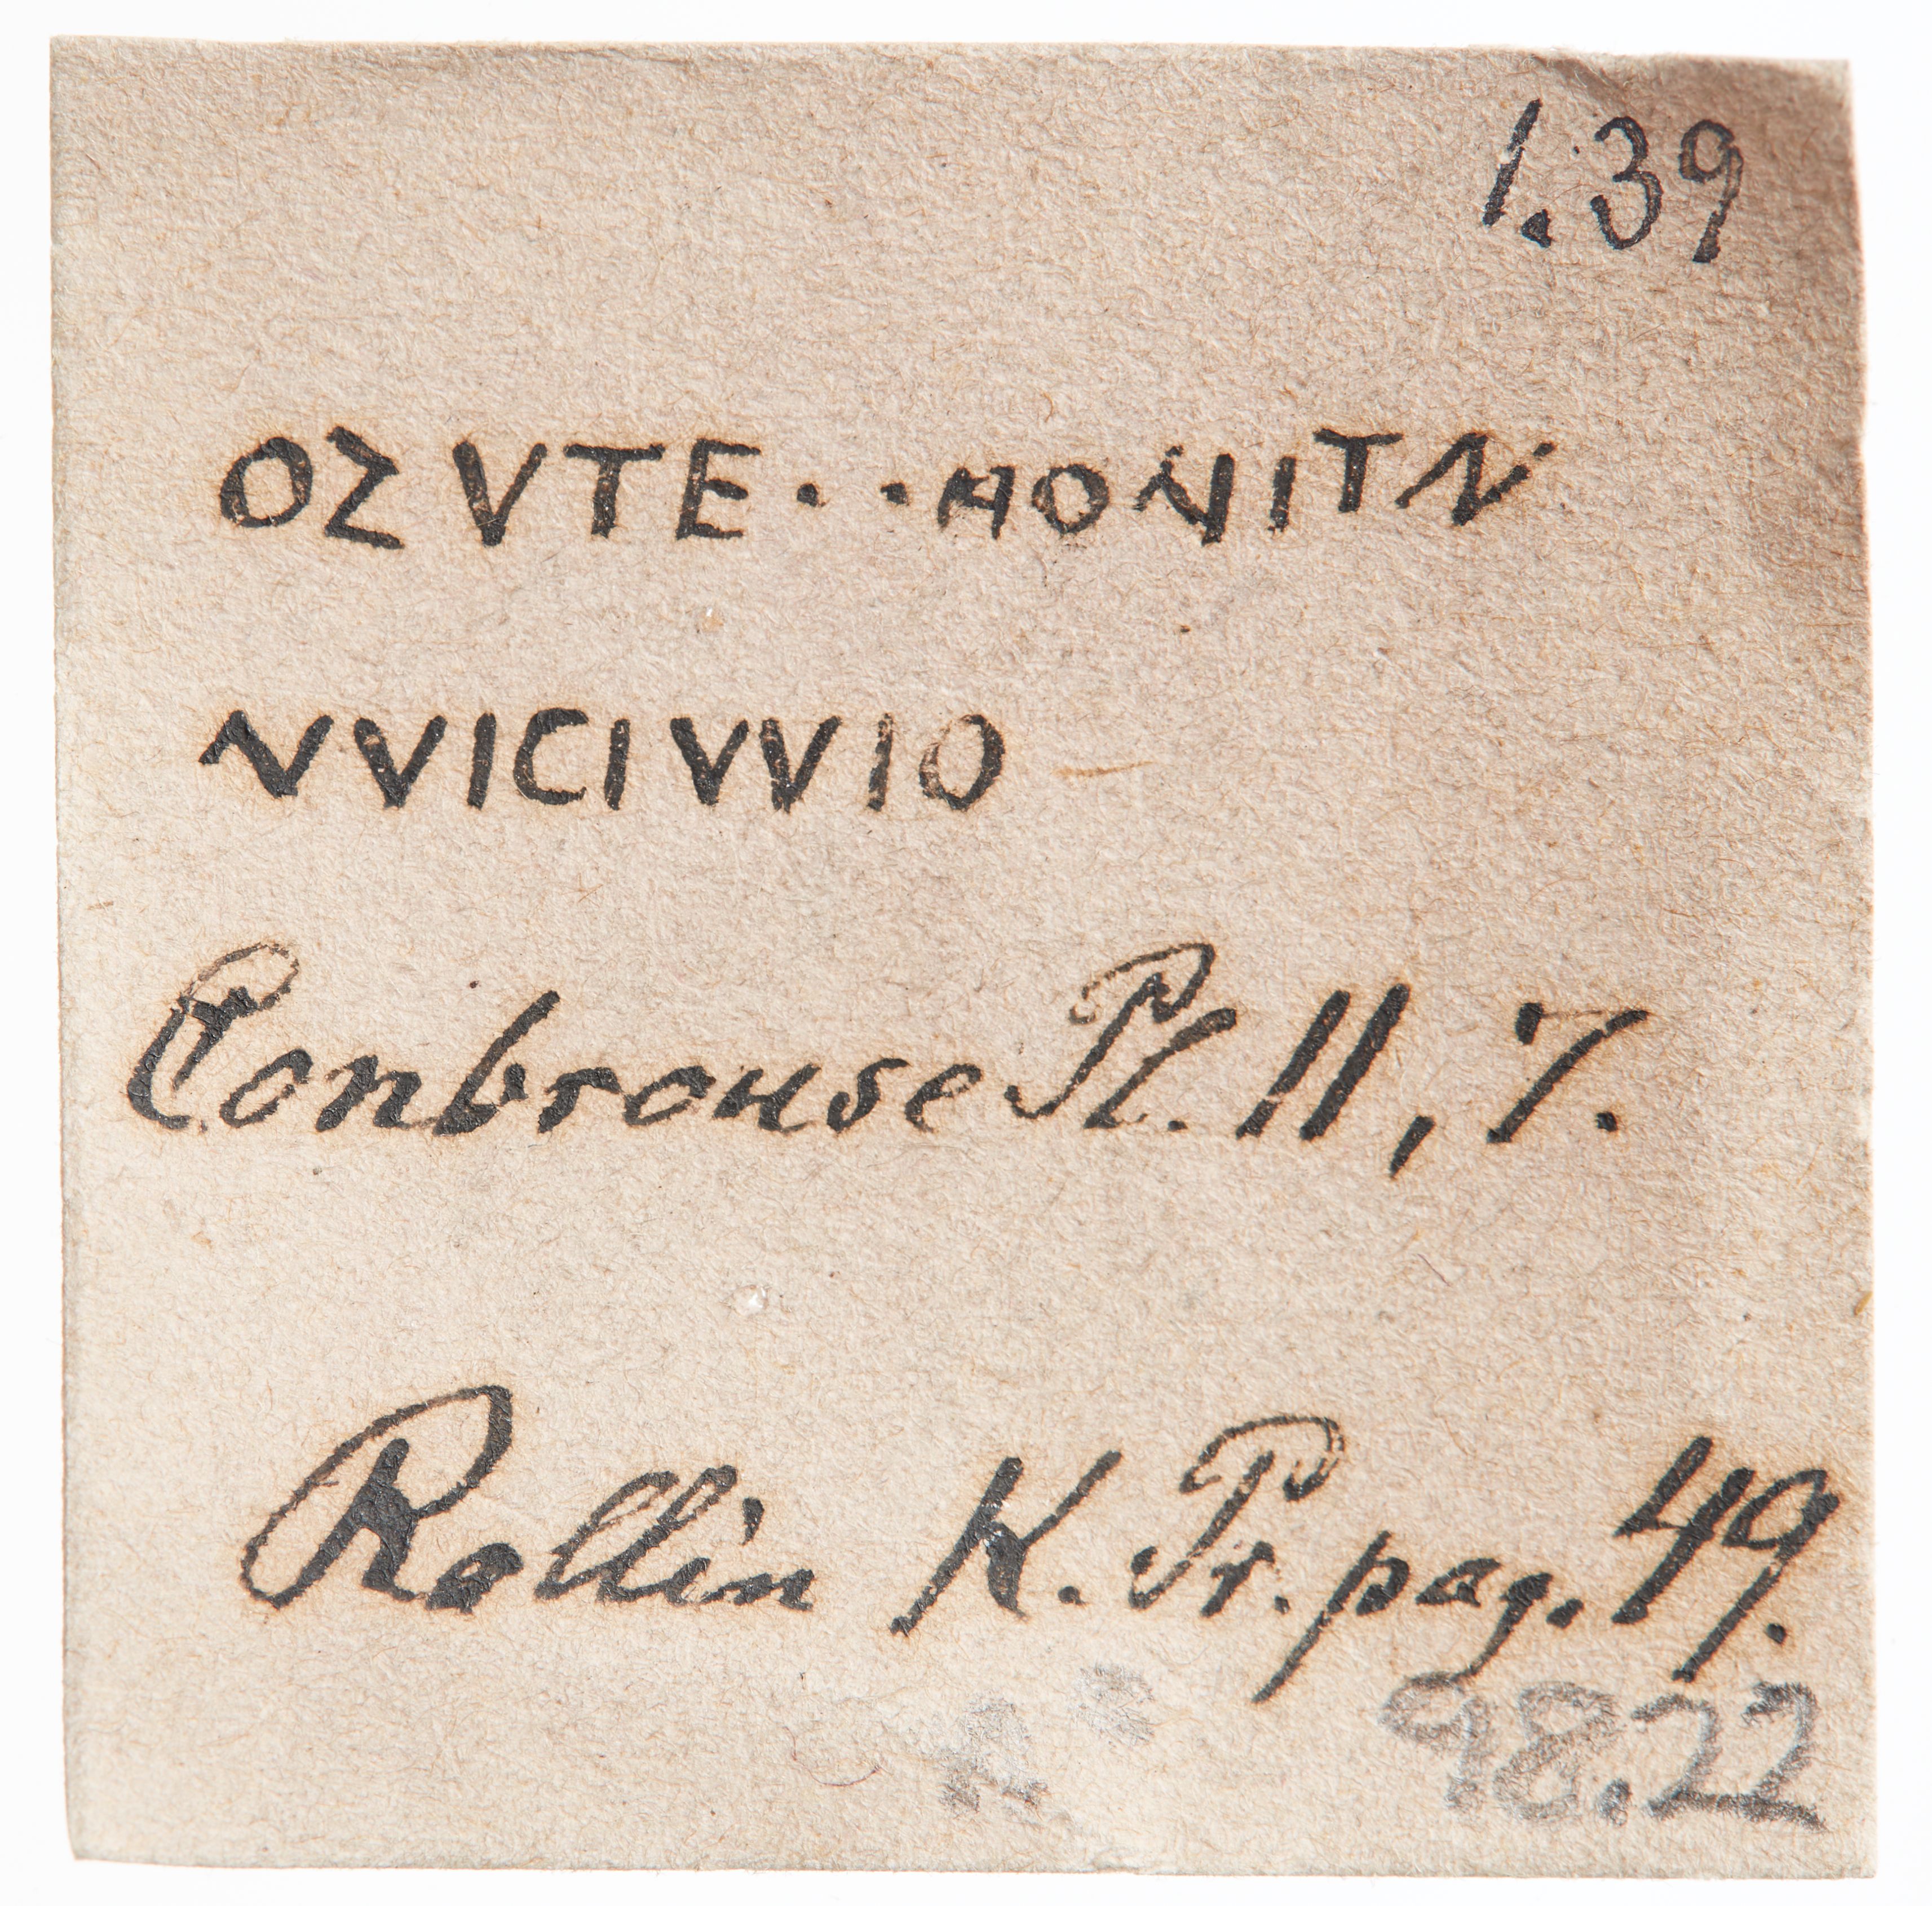 1.39
OZVTE..HONITN
NVICIVVIO
Conbrouse Pl. 11, 7.
Rollin K. Pr. pag. 49.
98.22